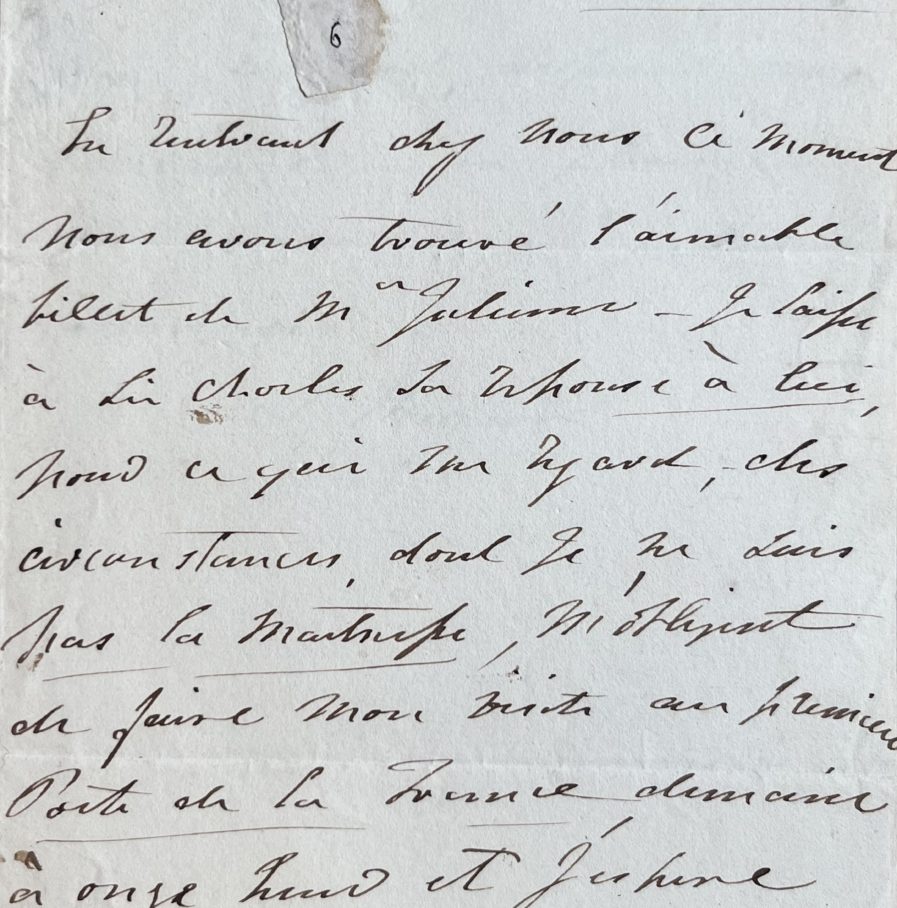 6
En rentrant chez nous ce moment
nous avons trouvé l'aimable
billet de Mᵉ Julienne – Je laisse
à Sir Charles sa réponse à lui,
pour ce qui me regard, – des
circonstances, dont Je ne suis
pas la maitresse, m'obligent
de faire mon visite au premier
Poète de la France demaine
à onze heurs et J'espere